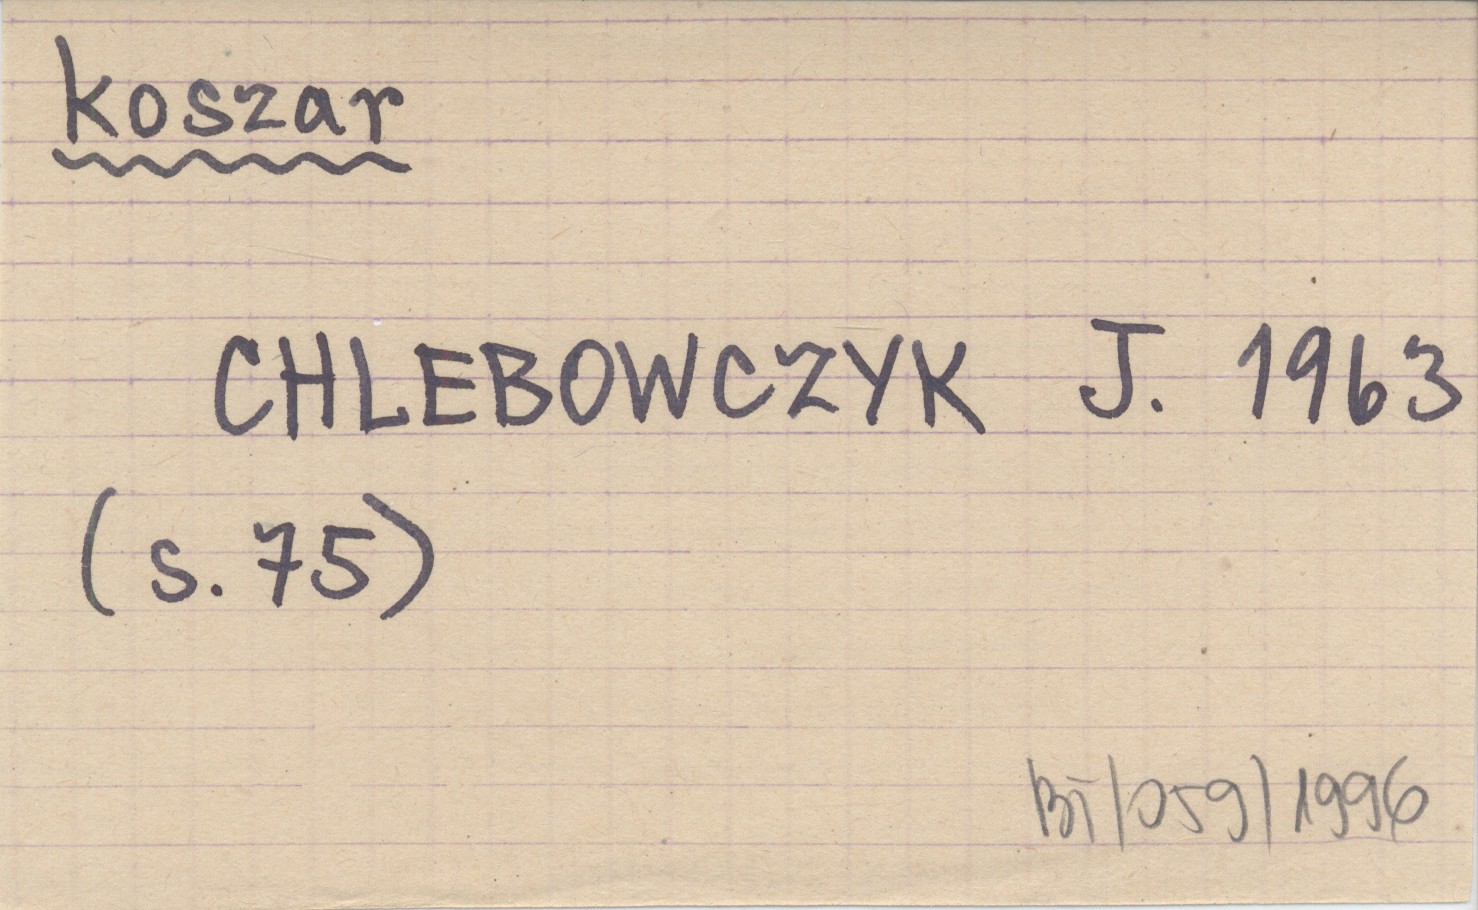 koszar
CHLEBOWCZYK J. 1963
(s. 75)
BT/059/1996